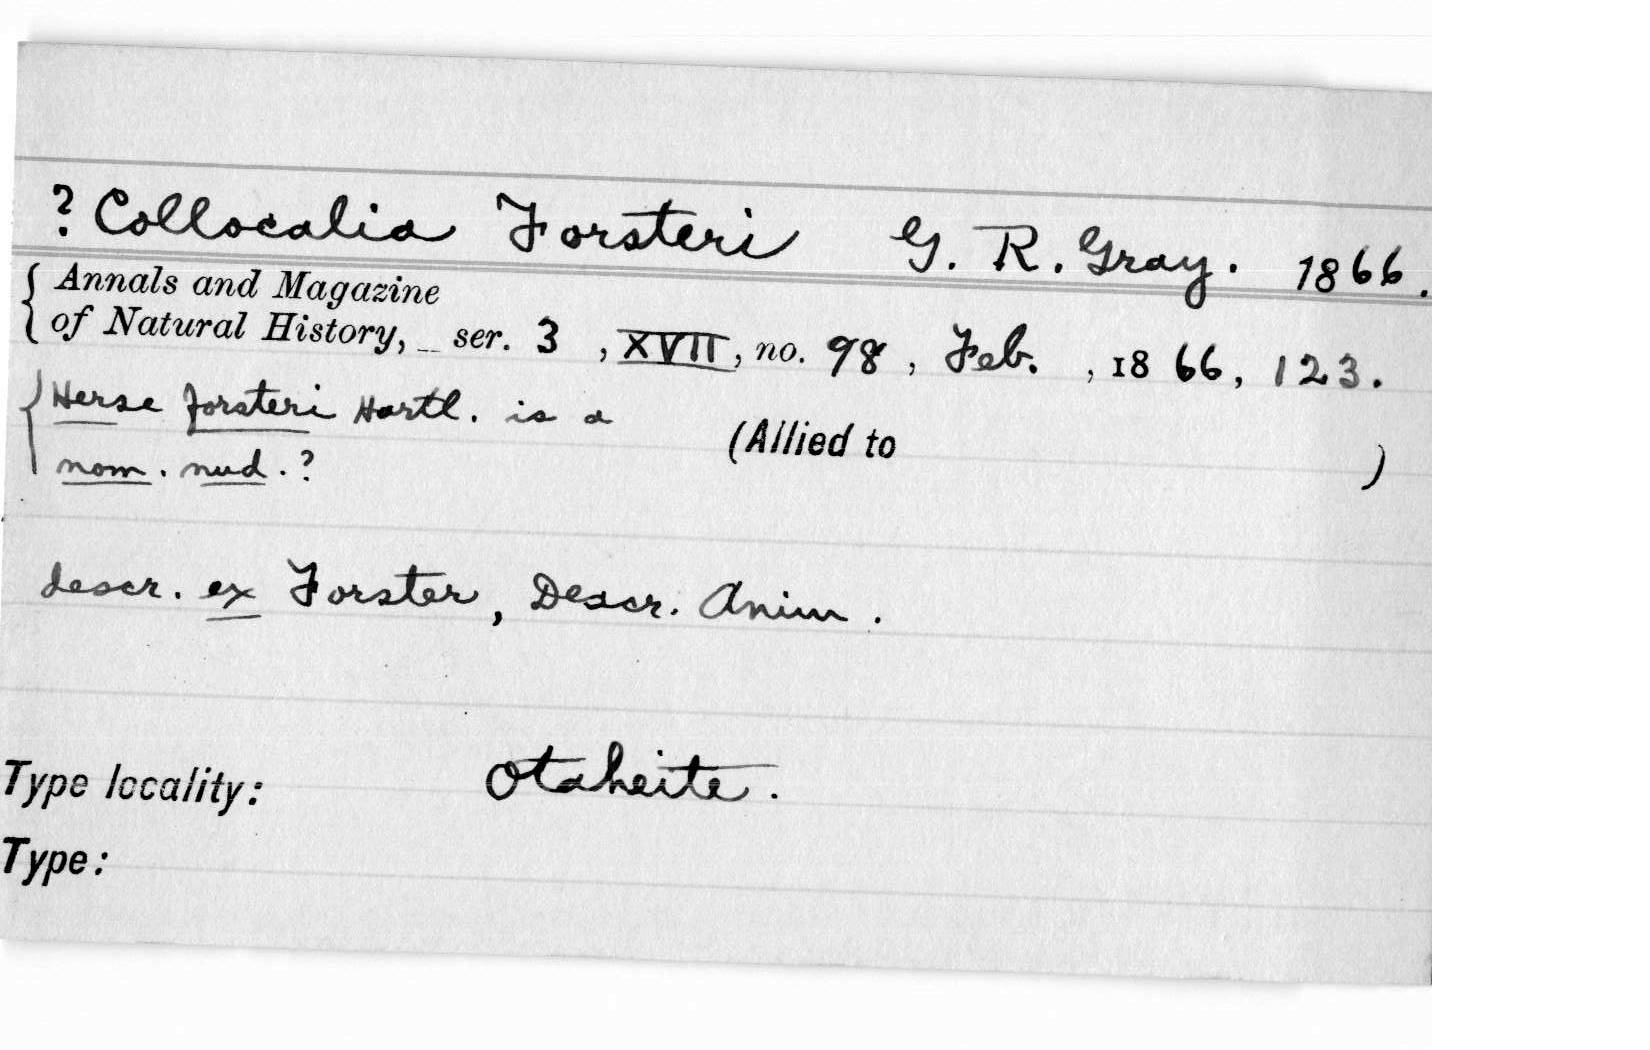 ? Collocalia Forsteri G. R. Gray. 1866.
Annals and Magazine
of Natural History, _ ser. 3 , XVII, no. 98 , Feb. , 1866, 123.
Herse forsteri Hartl. is a
(Allied to )
nom. nud. ?
descr. ex Forster, Descr. Anim.
Type locality: Otaheite.
Type: